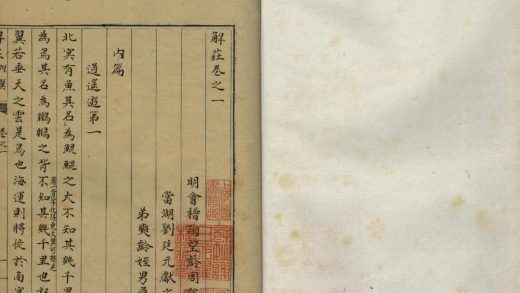 解莊卷之一
明會稽陶望齡周
當湖劉廷元獻
弟奭齡姪男
内篇
逍遙遊第一
北冥有魚其名為鯤鯤之大不知其幾千里
為鳥其名為鵬鵬之背不知其幾千里也
翼若垂天之雲是鳥也海運則將徙於南冥
卷之一